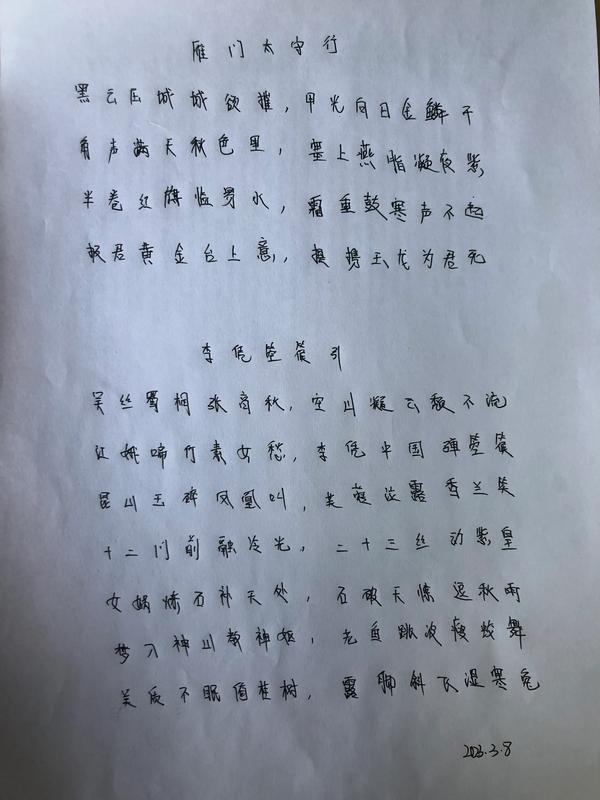 雁门太守行
黑云压城城欲摧，甲光向日金鳞开
角声满天秋色里，塞上燕脂凝夜紫
半卷红旗临易水，霜重鼓寒声不起
报君黄金台上意，提携玉龙为君死
李凭箜篌引
吴丝蜀桐张高秋，空山凝云颓不流
江娥啼竹素女愁，李凭中国弹箜篌
昆山玉碎凤凰叫，芙蓉泣露香兰笑
十二门前融冷光，二十三丝动紫皇
女娲炼石补天处，石破天惊逗秋雨
梦入神山教神妪，老鱼跳波瘦蛟舞
吴质不眠倚桂树，露脚斜飞湿寒兔
2023.3.8